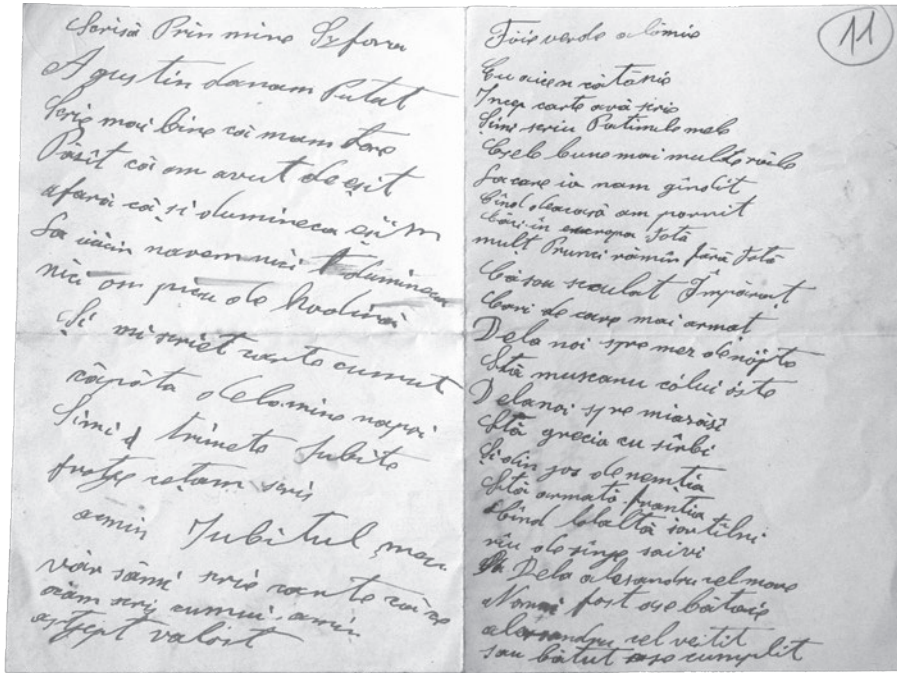 Scrisă Prin mine Szfara
Agustin danam Putat
Scrie mai bine că mam dore
Păsît că am avut de eşit
afară că şi dumineca eşim
La iăcin navem nici dumineca
nici om picu de hodină
Şi mi scriet carte cumut
căpăta delamine napoi
Simi trimeta Iubite
fratye cetam scris
amin Iubitul meu
văr sămi scrie carte căre
oiăm scris cumui amin
astşept valost
11
Fóie verde alămie
Eu aicen cătănie
Incep carte avă scrie
Şimi scriu Patimule mele
Cyele bune mai multe răele
La care io nam gîndit
Cînd deacasă am pornit
Căci în europa totă
mult Prunci rămîn fără totă
Căsou sculat Împărat
Cari de care mai armat
Dela noi spre mez de nópte
Stă muscanu cólui óste
Delanoi spre miarăsî
Stă grecia cu sîrbi
Şi din jos de nemţia
Stă armată franţia
Cînd lalaltă sontîlni
rîu de sînge saivi
Dela alesandru celmare
Nomai fost ase bătaie
alessandru cel vestit
sau bătut ase cumplit